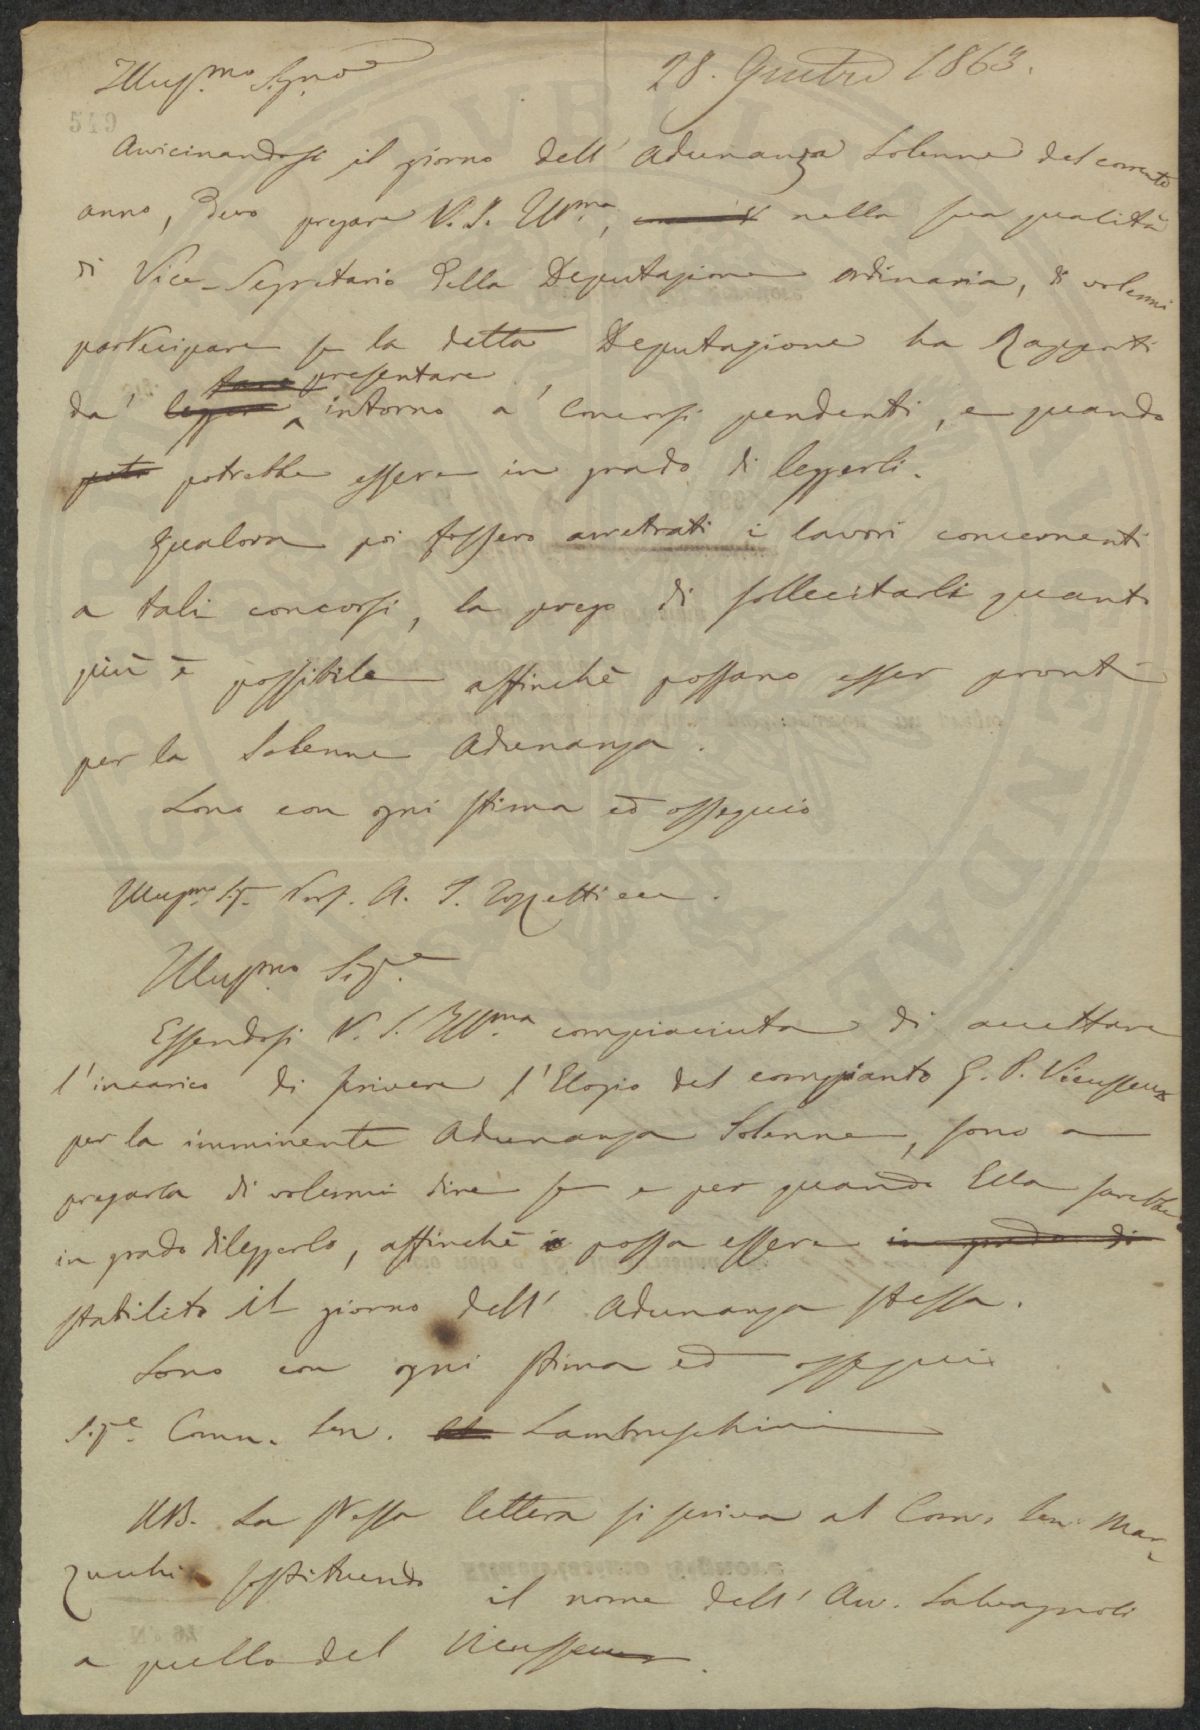 Illus.mo Sig.no 28. Giugno 1863.
549
Avvicinandosi il giorno dell' Adunanza Solenne del corrente
anno, devo pregare V. S. Ill.ma, nella sua qualità
di Vice-Segretario della Deputazione ordinaria, di volermi
partecipare se la detta Deputazione ha Rapporti
presentare
da leggere intorno a' Concorsi pendenti, e quando
potrebbe essere in grado di leggerli.
Qualora poi fossero arretrati i lavori concernenti
a tali concorsi, la prego di sollecitarli quanto
più è possibile affinchè possano esser pronti
per la Solenne Adunanza.
Sono con ogni stima ed ossequio
Illus.mo Sig. Prof. A. T. Tozzetti
Illus.mo Sig.e
Essendosi V. S. Ill.ma compiaciuta di accettare
l'incarico di scrivere l'Elogio del compianto G. P. Vieusseux
per la imminente Adunanza Solenne, sono a
pregarla di volermi dire se e per quando Ella sarebbe
in grado di leggerlo, affinchè possa essere in grado di
stabilito il giorno dell' Adunanza stessa.
Sono con ogni stima ed ossequio
Sig.e Comm. Sen. Lambruschini
NB. La stessa lettera si scriva al Com. Sen. Mar-
zucchi sostituendo il nome dell' Avv. Salvagnoli
a quello del Vieusseux.